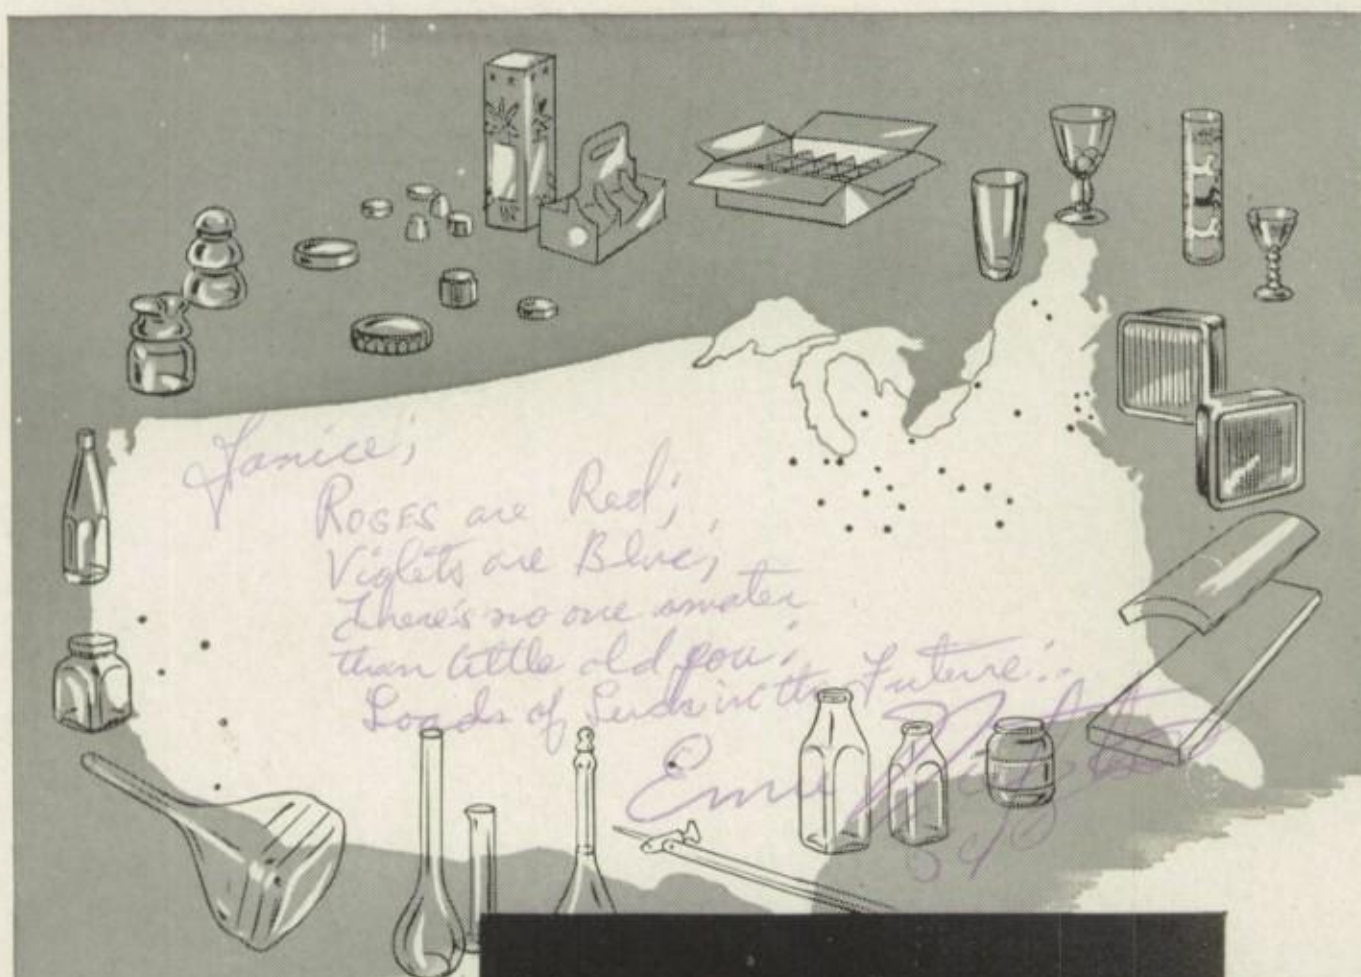 Janice;
Roses are Red;
Violets are Blue;
There's no one smater
than little old you;
Loads of Luck in the Future:
Ernie